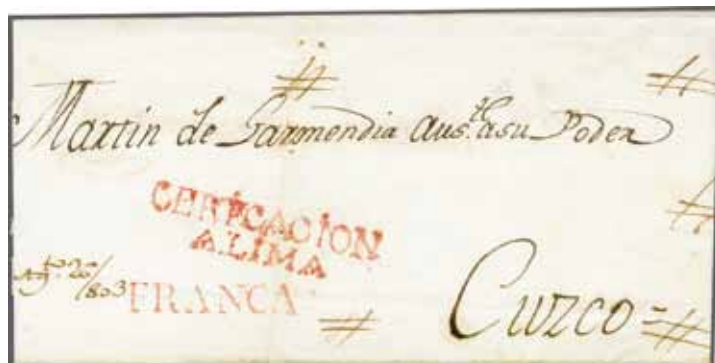 Martin de Garmendia aus.te asu Poder
CERTFCACION
A LIMA
Ag.to 26/803
FRANCA
Cuzco=